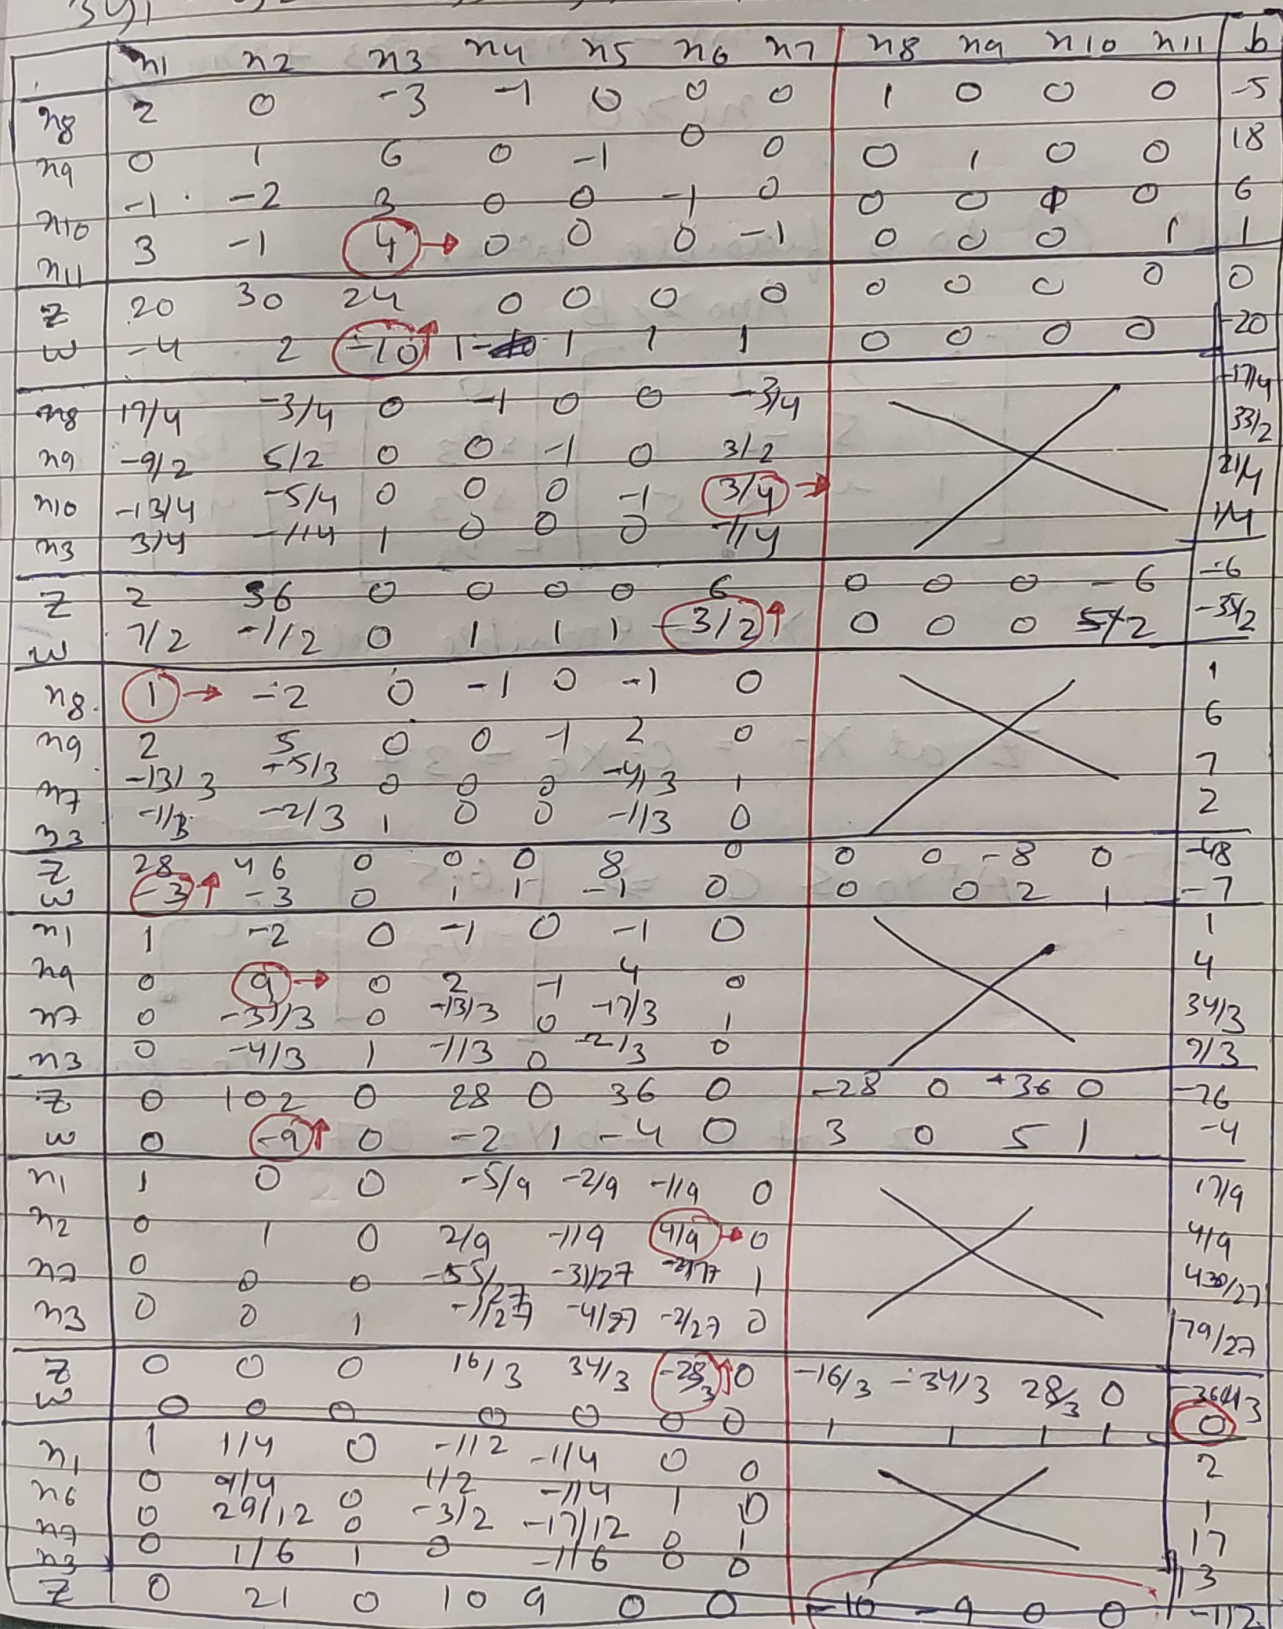 3y1
x1 x2 x3 x4 x5 x6 x7 x8 x9 x10 x11 b
x8 2 0 -3 -1 0 0 0 1 0 0 0 -5
x9 0 1 6 0 -1 0 0 0 1 0 0 18
x10 -1 -2 3 0 0 -1 0 0 0 1 0 6
x11 3 -1 4 → 0 0 0 -1 0 0 0 1 1
Z 20 30 24 0 0 0 0 0 0 0 0 0
W -4 2 -10 ↑ 1 1 1 1 0 0 0 0 -20
x8 17/4 -3/4 0 -1 0 0 -3/4 -17/4
x9 -9/2 5/2 0 0 -1 0 3/2 33/2
x10 -13/4 -5/4 0 0 0 -1 3/4 → 21/4
x3 3/4 -1/4 1 0 0 0 -1/4 1/4
Z 2 36 0 0 0 0 6 0 0 0 -6 -6
W 7/2 -1/2 0 1 1 1 -3/2 ↑ 0 0 0 5/2 -35/2
x8 1 → -2 0 -1 0 -1 0 1
x9 2 5 0 0 -1 2 0 6
x7 -13/3 -5/3 0 0 0 -4/3 1 7
x3 -1/3 -2/3 1 0 0 -1/3 0 2
Z 28 46 0 0 0 8 0 0 0 -8 0 -48
W -3 ↑ -3 0 1 1 -1 0 0 0 2 1 -7
x1 1 -2 0 -1 0 -1 0 1
x9 0 9 → 0 2 -1 4 0 4
x7 0 -31/3 0 -13/3 0 -17/3 1 34/3
x3 0 -4/3 1 -1/3 0 -2/3 0 7/3
Z 0 102 0 28 0 36 0 -28 0 +36 0 -76
W 0 -9 ↑ 0 -2 1 -4 0 3 0 5 1 -4
x1 1 0 0 -5/9 -2/9 -1/9 0 17/9
x2 0 1 0 2/9 -1/9 4/9 → 0 4/9
x7 0 0 0 -55/27 -31/27 1 430/27
x3 0 0 1 -1/27 -4/27 -2/27 0 79/27
Z 0 0 0 16/3 34/3 -28/3 ↑ 0 -16/3 -34/3 28/3 0
W 0 0 0 0 0 0 0 1 1 1 1 0
x1 1 1/4 0 -1/2 -1/4 0 0 2
x6 0 9/4 1/2 -1/4 1 0 1
x7 0 29/12 0 -3/2 -17/12 0 1 17
x3 0 1/6 1 0 -1/6 0 0 3
Z 0 21 0 10 9 0 0 -10 -9 0 0 -112